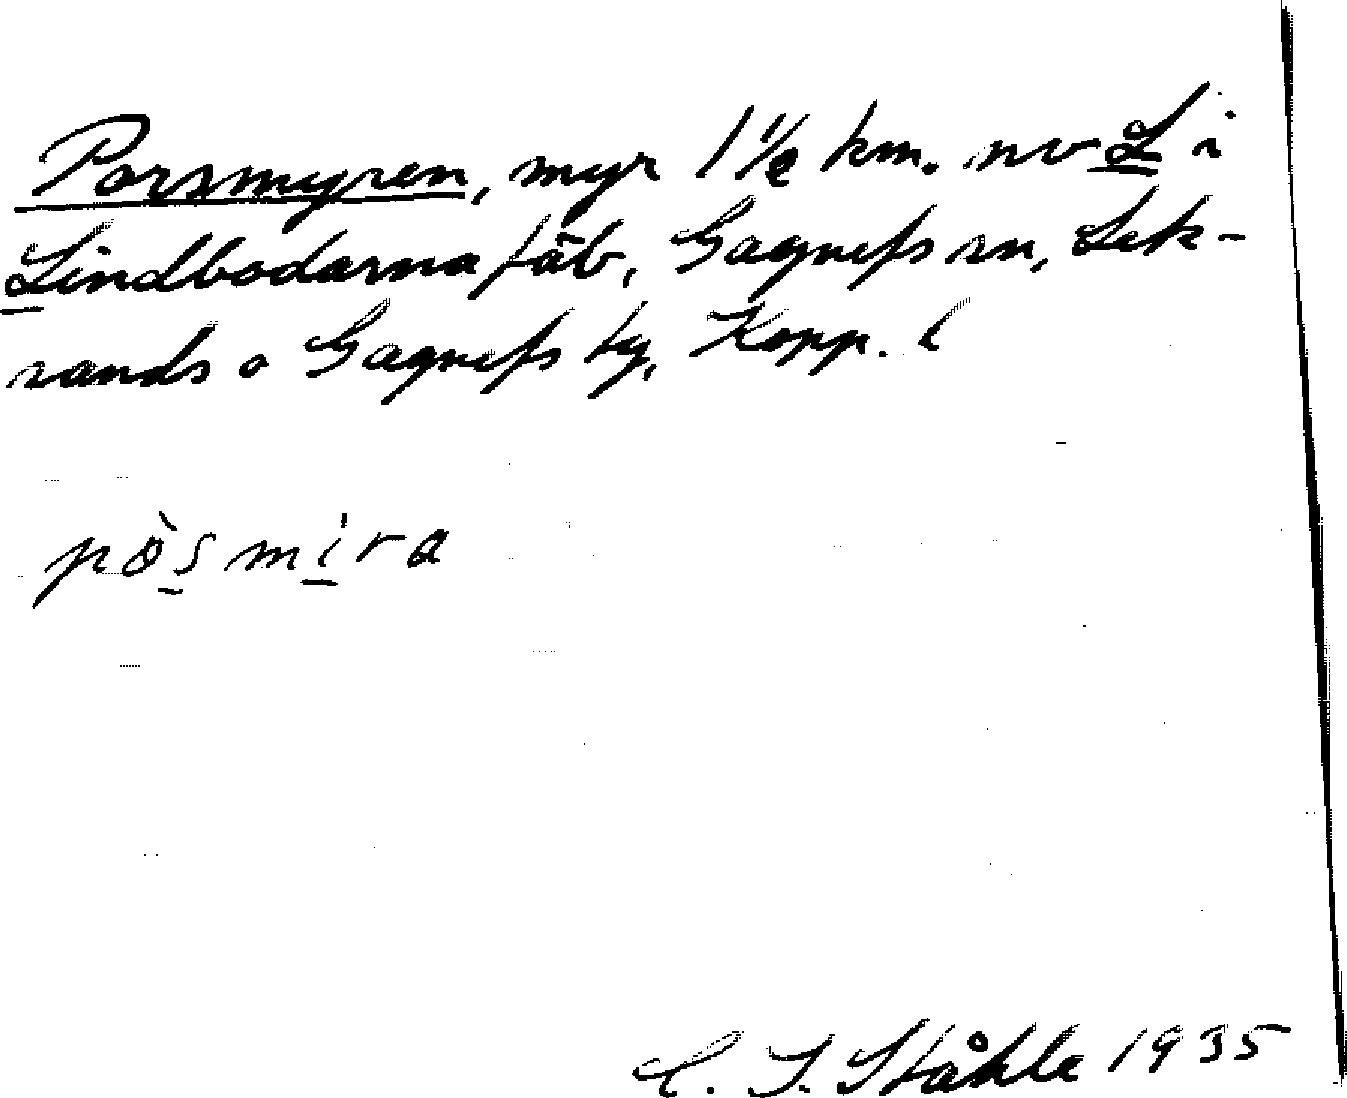 Porsmyren, myr 1 1/2 km. nv L i
Lindbodarna fäb, Gagnefs sn, Lek-
sands o Gagnefs tg, Kopp. l
pòsmira
C. I. Ståhle 1935